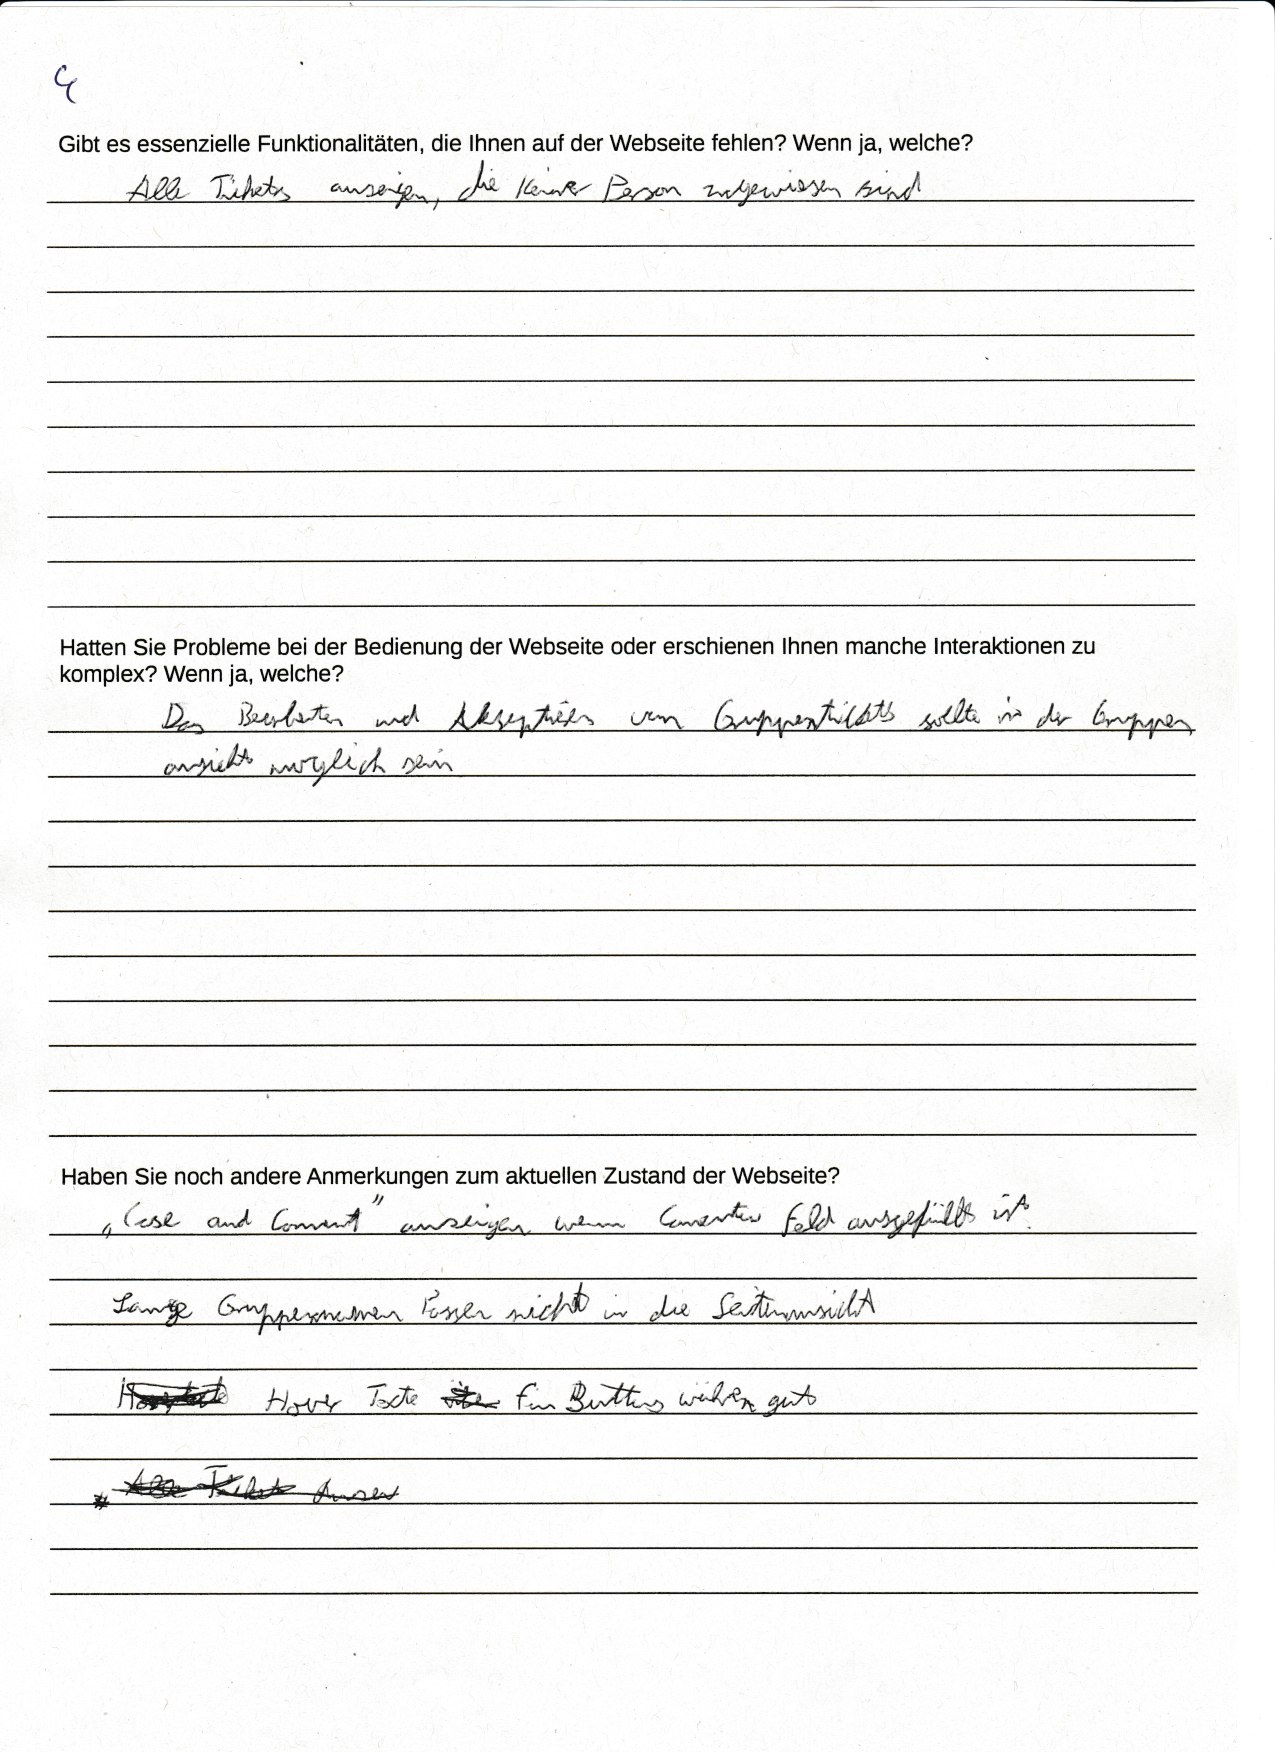 4
Gibt es essenzielle Funktionalitäten, die Ihnen auf der Webseite fehlen? Wenn ja, welche?
Alle Tickets anzeigen, die keiner Person zugewiesen sind
Hatten Sie Probleme bei der Bedienung der Webseite oder erschienen Ihnen manche Interaktionen zu
komplex? Wenn ja, welche?
Das Bearbeiten und Akzeptieren von Gruppentickets sollte in der Gruppen
ansicht möglich sein
Haben Sie noch andere Anmerkungen zum aktuellen Zustand der Webseite?
and Comment" anzeigen wenn Feld ausgefüllt ist.
Lange Gruppennamen Passen nicht in die Seitenansicht
Hover Texte für Buttons wären gut
Alle Tickets